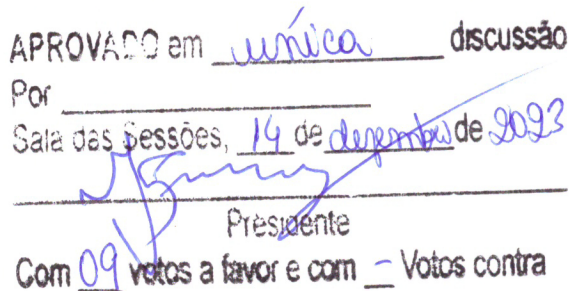 APROVADO em única discussão
Por
Sala das Sessões, 14 de dezembro de 2023
Presidente
Com 09 votos a favor e com - Votos contra